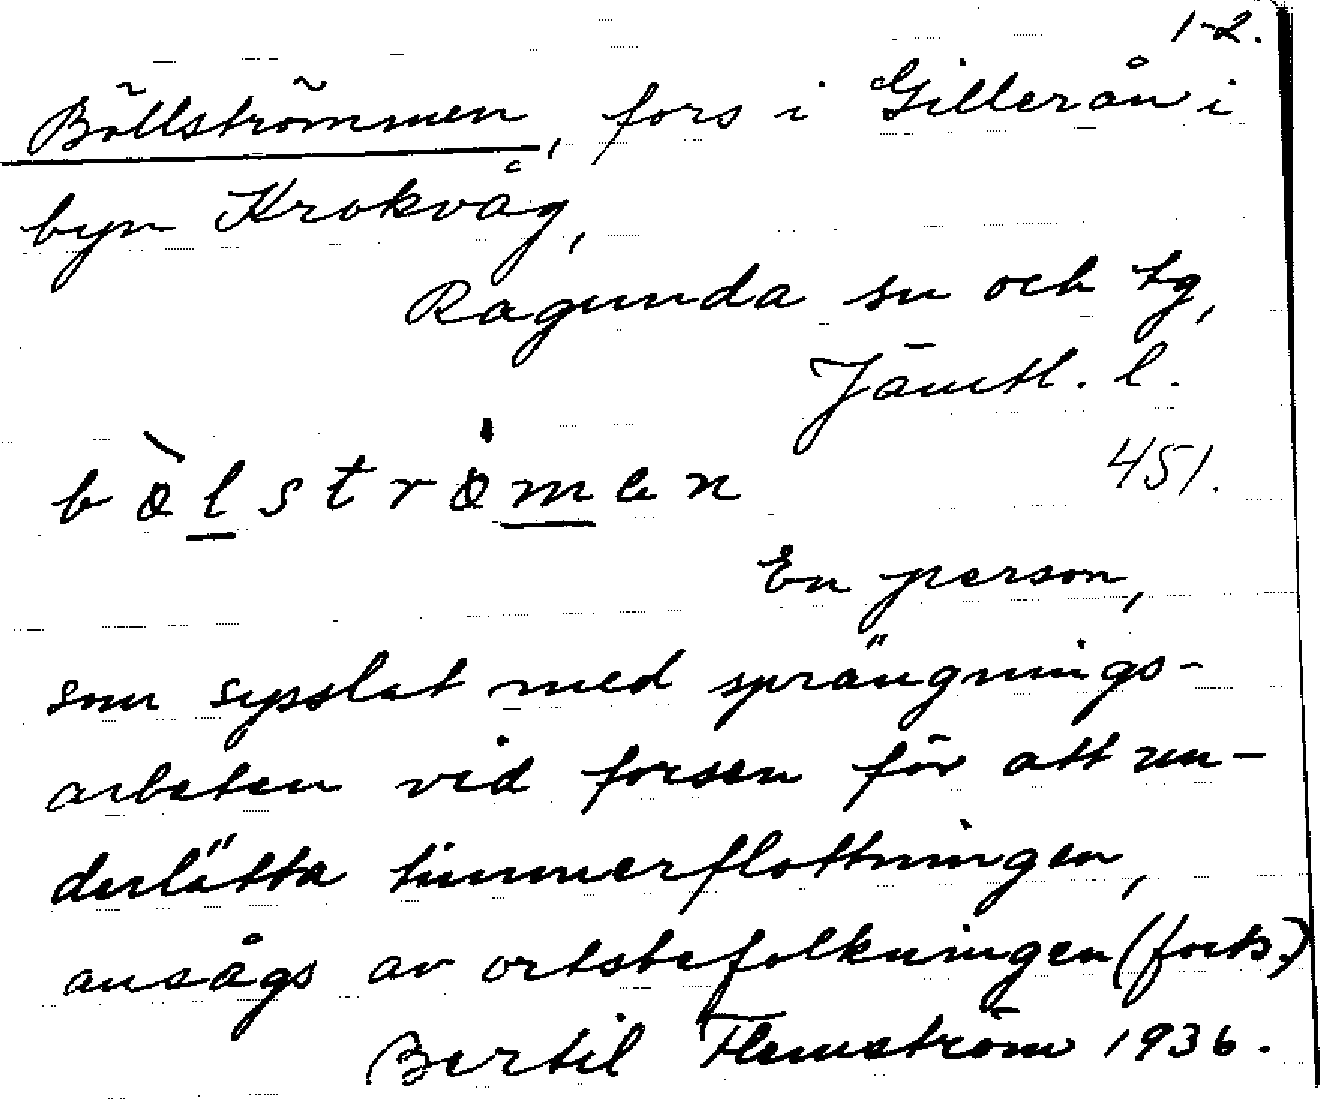 1-2.
Böllströmmen, fors i Gillerån i
byn Krokvåg,
Ragunda sn och tg,
Jämtl. l.
451.
bòlströmen
En person,
som sysslat med sprängnings-
arbeten vid forsen för att un-
derlätta timmerflottningen,
ansågs av ortsbefolkningen (forts.)
Bertil Flemström 1936.